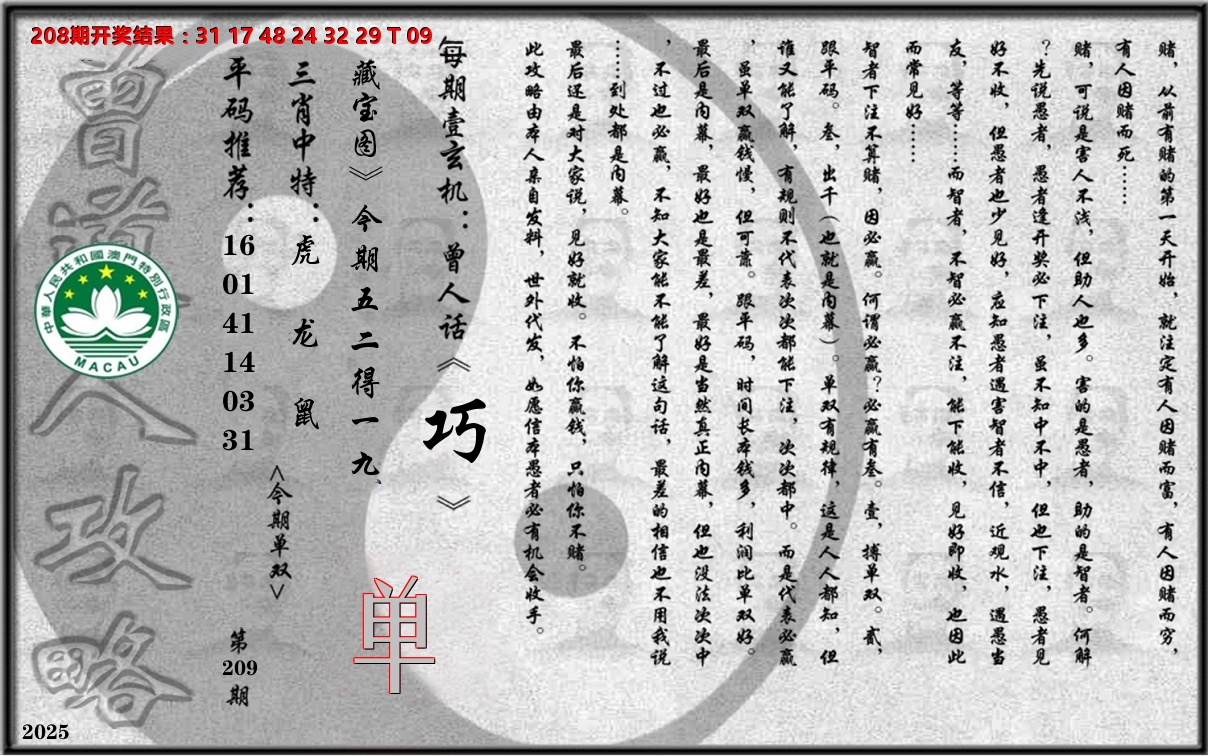 208期开奖结果：31 17 48 24 32 29 T 09
赌，从前有赌的第一天开始，就注定有人因赌而富，有人因赌而穷，
有人因赌而死……
赌，可说是害人不浅，但助人也多。害的是愚者，助的是智者。何解
？先说愚者，愚者逢开奖必下注，虽不知中不中，但也下注，愚者见
好不收，但愚者也少见好，应知愚者遇害智者不信，近观水，遇愚当
友，等等……而智者，不智必赢不注，能下能收，见好即收，也因此
而常见好……
智者下注不算赌，因必赢。何谓必赢？必赢有叁。壹，搏单双。贰，
跟平码。叁，出千（也就是内幕）。单双有规律，这是人人都知，但
谁又能了解，有规则不代表次次都能下注，次次都中。而是代表必赢
，虽单双赢钱慢，但可靠。跟平码，时间长本钱多，利润比单双好。
最后是内幕，最好也是最差，最好是当然真正内幕，但也没法次次中
，不过也必赢，不知大家能不能了解这句话，最差的相信也不用我说
……到处都是内幕。
最后还是对大家说，见好就收。不怕你赢钱，只怕你不赌。
此攻略由本人亲自发料，世外代发，如愿信本愚者必有机会收手。
每期壹玄机：曾人话《巧》
藏宝图》今期五二得一九、
单
三肖中特：虎 龙 鼠
<今期单双>
平码推荐：16 01 41 14 03 31
第209期
曾道人攻略
中華人民共和國澳門特別行政區
MACAU
2025